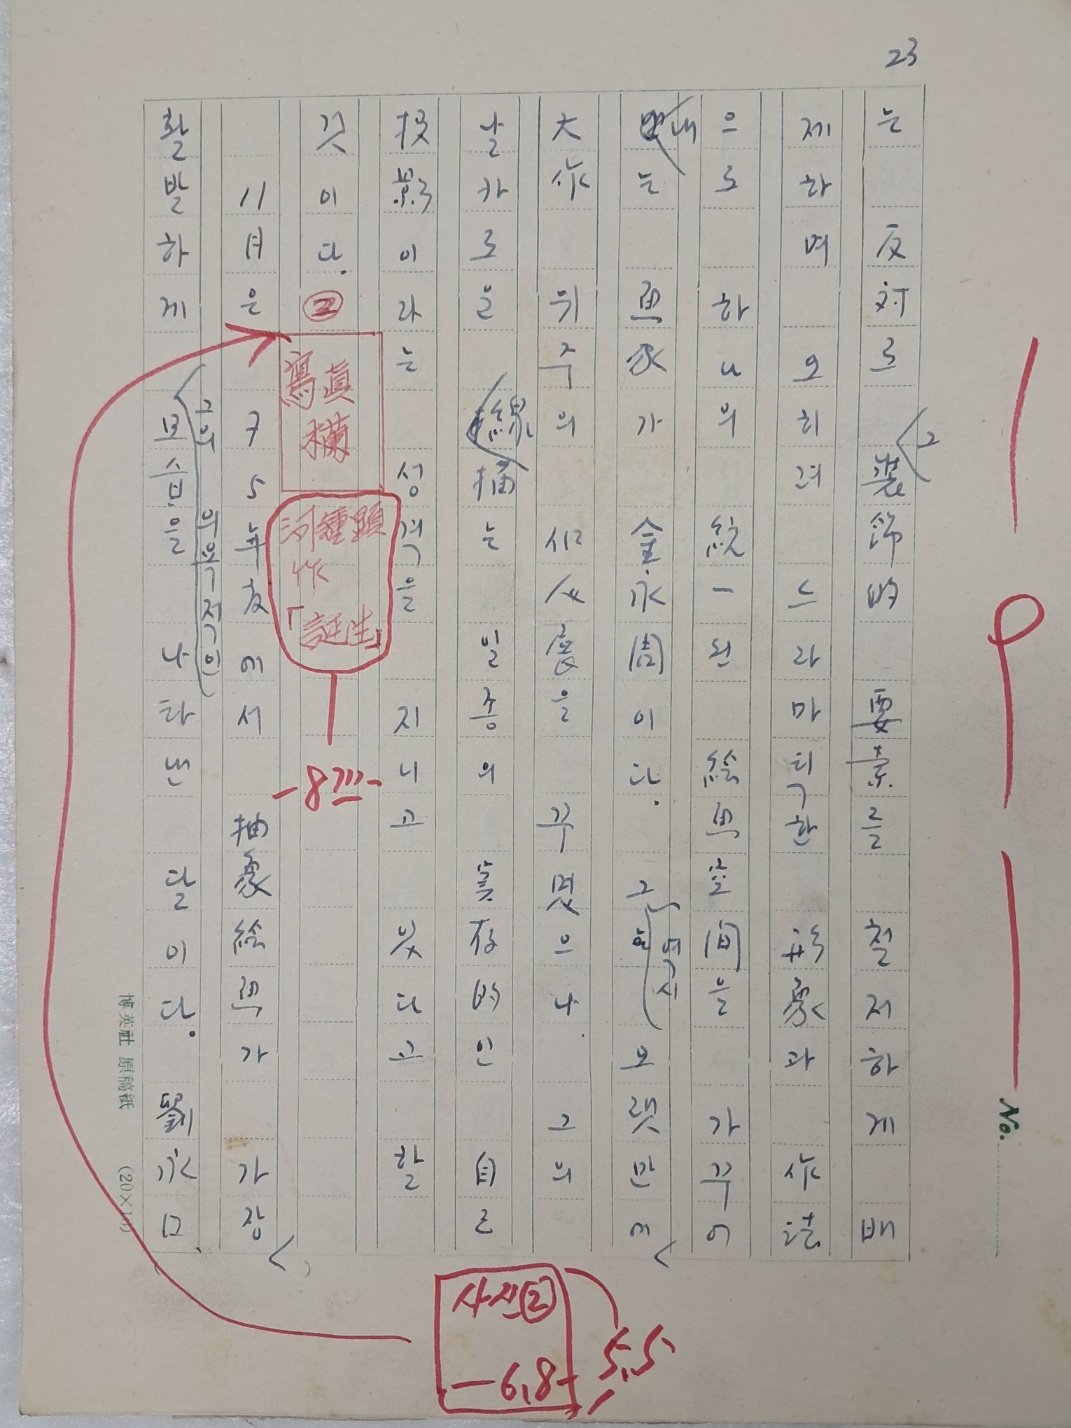 23
는 反対로 그 裝飾的 要素를 철저하게 배
제하며 오히려 드라마틱한 形象과 作法
으로 하나의 統一된 絵画空間을 가꾸어
내는 画家가 金永周이다. 그 역시 모랫만에
大作 위주의 個人展을 꾸몄으나 그의
날카로운 線描는 일종의 実存的인 自己
投影이라는 성격을 지니고 있다고 할
것이다.
②
寫眞
横
河種顕
作
「誕生」
-8㎝-
11月은 75年度에서 抽象絵画가 가장
활발하게 그의 의욕적인 모습을 나타낸 달이다. 劉永口、
사진②
-6.8-
5.5
博英社 原稿紙 (20×10)
No.